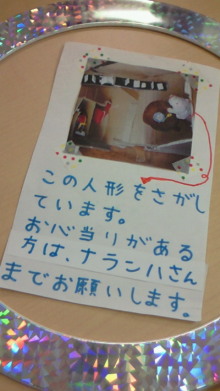 この人形をさがし
ています。
お心当りがある
方は、ナランハさん
までお願いします。